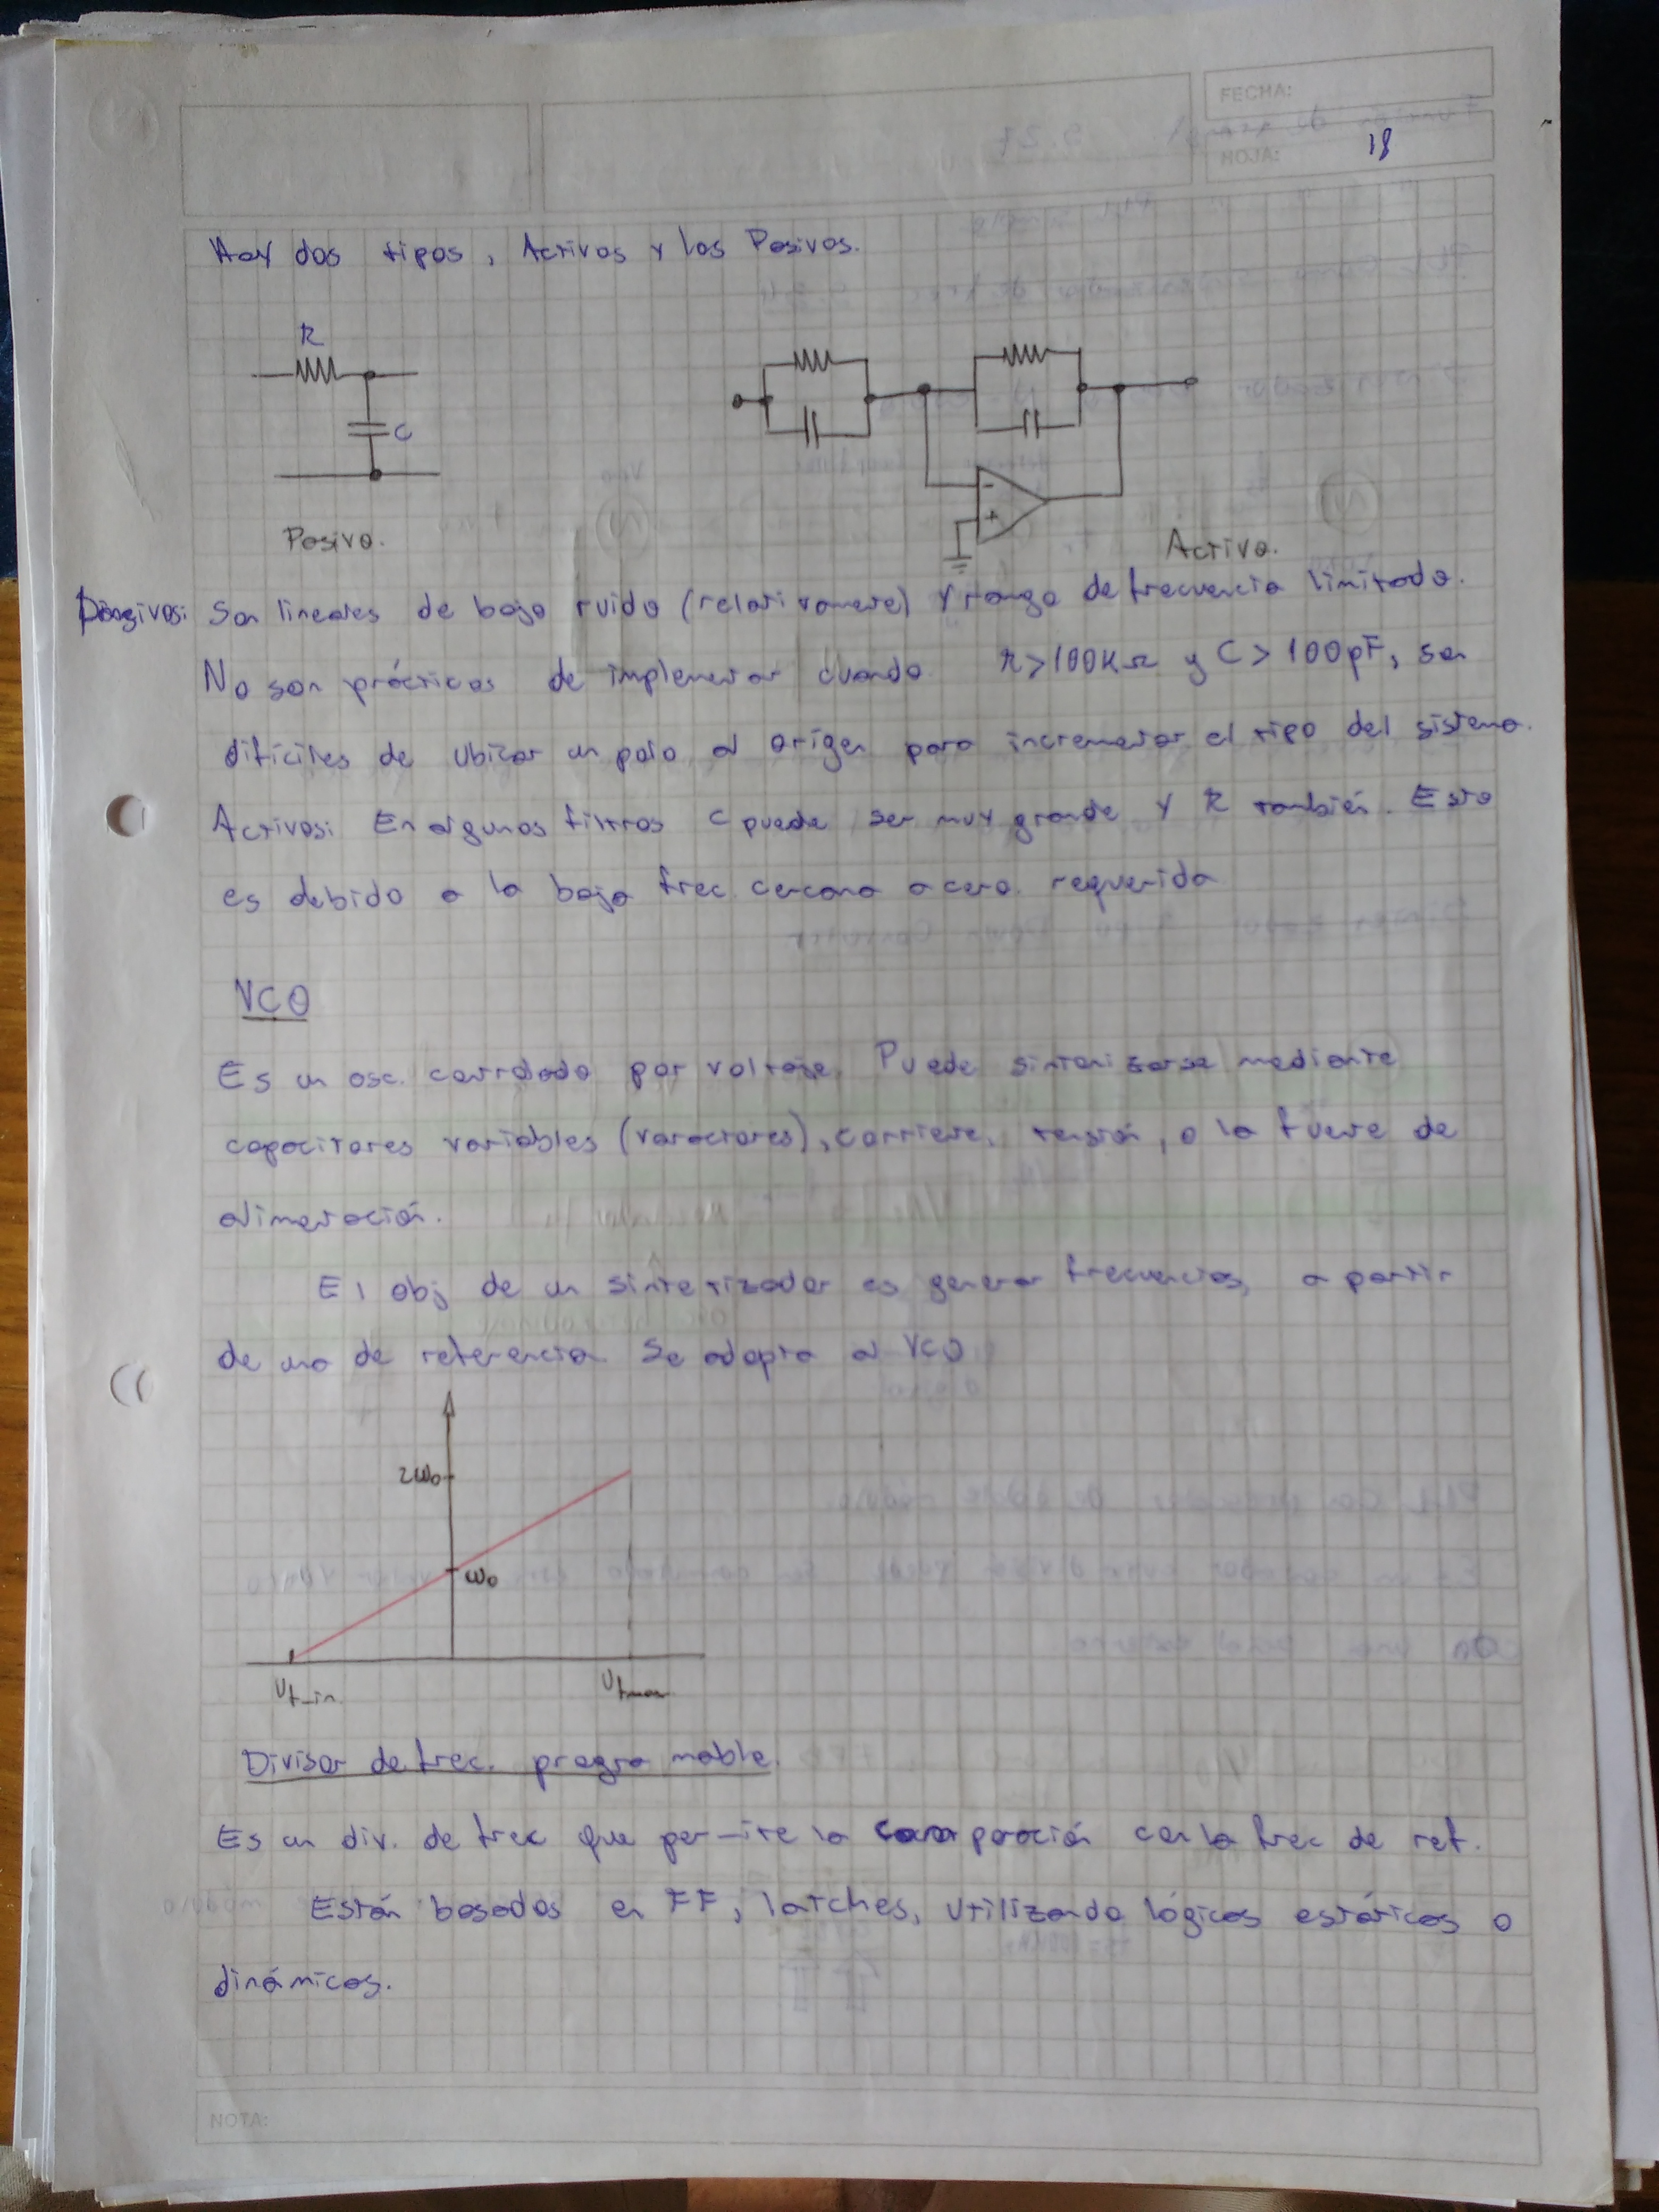 FECHA:
HOJA: 18
Hay dos tipos, Activos y los Pasivos.
R
C
-
+
Pasivo.
Activo.
Pasivos: Son lineales de bajo ruido (relativamente) y rango de frecuencia limitado.
No son prácticos de implementar cuando R>100KΩ y C>100pF, son
difíciles de ubicar un polo al origen para incrementar el tipo del sistema.
Activos: En algunos filtros C puede ser muy grande y R también. Esto
es debido a la baja frec. cercana a cero. requerida
VCO
Es un osc. controlado por voltaje. Puede sintonizarse mediante
capacitores variables (varactores), corriente, tensión, o la fuente de
alimentación.
El obj de un sintetizador es generar frecuencias, a partir
de una de referencia. Se adapta al VCO
2ω₀
ω₀
Vtmin
Vtmax
Divisor de frec. programable.
Es un div. de frec que permite la comparación con la frec de ref.
Están basados en FF, latches, utilizando lógicas estáticas o
dinámicas.
NOTA: